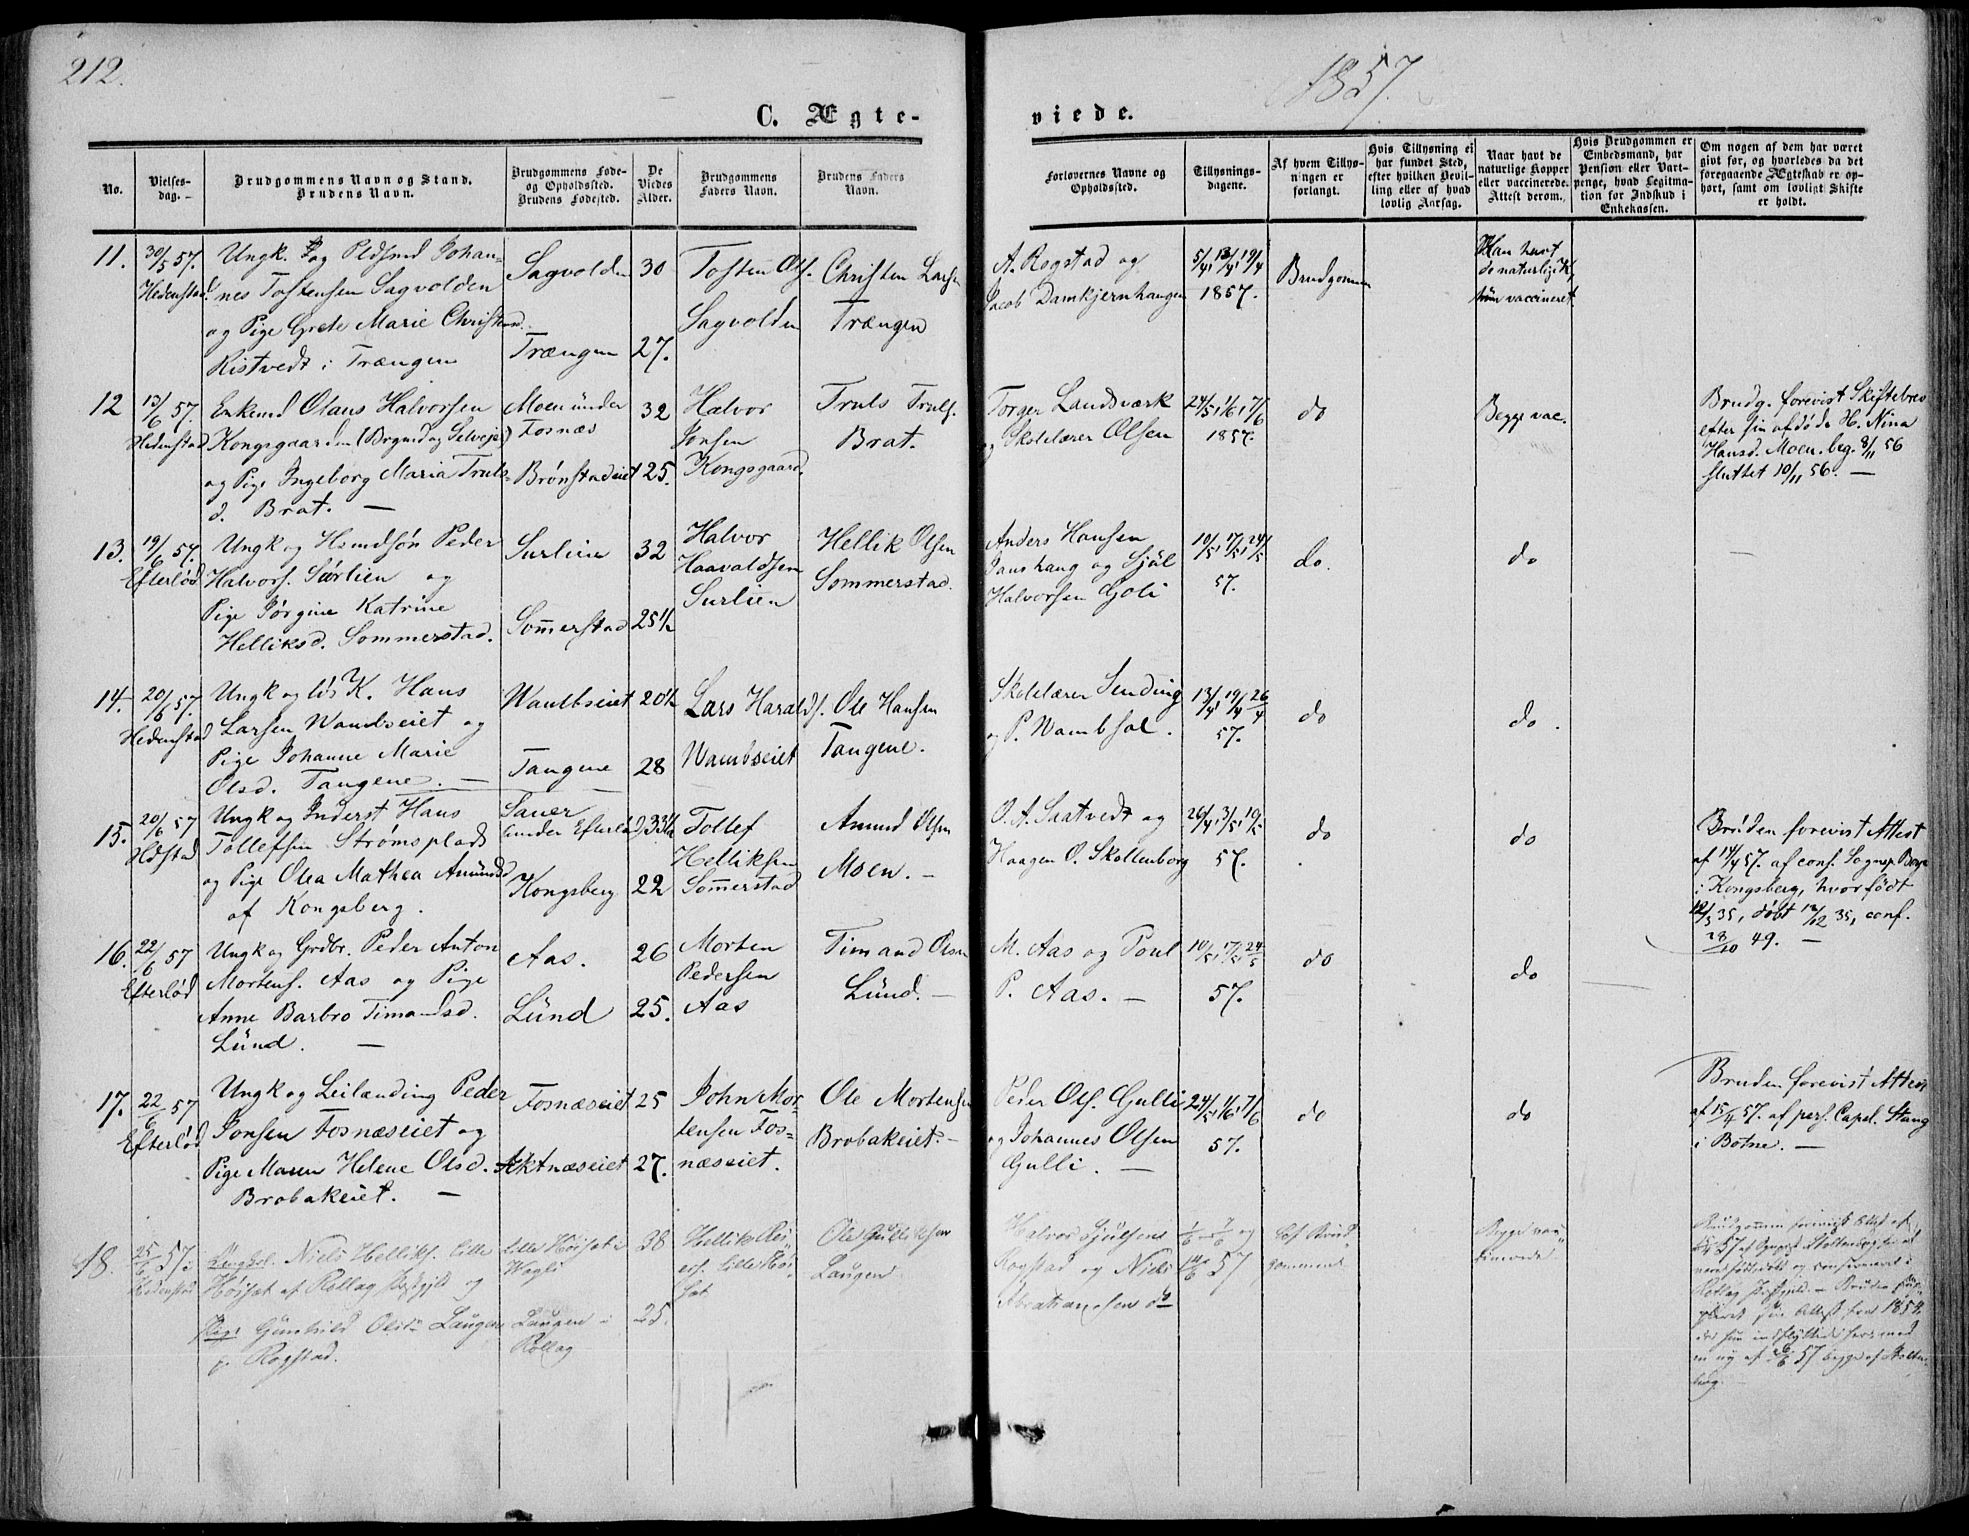 212.
1857.
C. Ægte-
viede.
No.
Vielses-
dag.
Brudgommens Navn og Stand.
Brudens Navn.
Brudgommens Føde-
og Opholdssted.
Brudens Fødested.
De
Viedes
Alder.
Brudgommens
Faders Navn.
Brudens Faders
Navn.
Forlovernes Navne og
Opholdssted.
Tillysnings-
dagene.
Af hvem Tillys-
ningen er
forlangt.
Hvis Tillysning ei
har fundet Sted,
efter hvilken Bevil-
ling eller af hvad
lovlig Aarsag.
Naar havt de
naturlige Kopper
eller vaccinerede.
Attest derom.
Hvis Brudgommen er
Embedsmand, har
Pension eller Vart-
penge, hvad Legitima-
tion for Indskud i
Enkekassen.
Om nogen af dem har været
givt før, og hvorledes da det
foregaaende Ægteskab er op-
hørt, samt om lovligt Skifte
er holdt.
11.
30/5 57.
Hedenstad
Ungk. og Pldsmd Johan-
nes Tostensen Sagvolden
og Pige Grete Marie Christend.
Ristvedt i Trængen
Sagvolden
Trængen
30
27.
Tosten Ols.
Sagvolden
Christen Larsen
Trængen
A. Rogstad og
Jacob Damkjernhaugen
5/4, 13/4, 19/4
1857.
Brudgommen
Han havt
de naturlige K,
hun vaccineret.
12
13/6 57.
Hedenstad
Enkemd Olaus Halvorsen
Kongsgaarden (Brgmd og Selvejer)
og Pige Ingeborg Maria Truls-
d. Brat. —
Moen under
Fosnæs
Brønstadeiet
32
25.
Halvor
Jonsen
Kongsgaard.
Truls Truls.
Brat.
Torger Landsværk
og Skolelærer Olsen
24/5, 1/6, 7/6
1857.
do
Begge vac.
Brudg. forevist Skiftebrev
efter sin afdøde H. Nina
Hansd. Moen. beg. 8/11 56
sluttet 10/11 56. —
13.
19/6 57.
Efterlød
Ungk og Husmdsøn Peder
Halvors. Surlien og
Pige Jørgine Katrine
Helliksd. Sommerstad.
Surlien
Som̅erstad
32
25 1/2
Halvor
Haavaldsen
Surlien
Hellik Olsen
Sommerstad.
Anders Hansen
Paushaug og Sjül
Halvorsen Goli
10/5, 17/5, 24/5
57.
do.
do
—
14.
20/6 57.
Hedenstad
Ungk og løs K. Hans
Larsen Wambseiet og
Pige Johanne Marie
Olsd. Tangene. —
Wambseiet
Tangene
20 1/2
28
Lars Haralds.
Wambseiet
Ole Hansen
Tangene.
Skolelærer Sending
og P. Wambsol.
13/4, 19/4 26/4
57.
do
do.
15.
20/6 57
Hdstad
Ungk og Inderst Hans
Tollefsen Strømsplads
og Pige Olea Mathea Amundsd
af Kongsberg.
Sauer
(under Efterlød)
Kongsberg
33 1/2
22
Tollef
Helliksen
Som̅erstad
Amund Olsen
Moen. —
O. A. Saatvedt og
Haagen O. Skollenborg
26/4, 3/5, 10/5
57.
do
do
Bruden forevist Attest
af 14/4 57. af conf. Sognep. Borge
i Kongsberg, hvor født
12/5 35, døbt 12/12 35, conf.
28/10 49. —
16.
22/6 57
Efterlød
Ungk og Grdbr. Peder Anton
Mortens. Aas og Pige
Anne Barbro Timandsd.
Lünd. —
Aas.
Lünd
26
25.
Morten
Pedersen
Aas
Timand Olsen
Lünd. —
M. Aas og Poul
P. Aas. —
10/5, 17/5, 24/5
57.
do
do
17.
22/6 57
Efterlød
Ungk og Leilænding Peder
Jonsen Fosnæseiet og
Pige Maren Helene Olsd.
Brobakeiet. —
Fosnæseiet
Aktnæseiet
25
27.
John Mor-
tensen Fos-
næseiet.
Ole Mortensen
Brobakeiet. —
Peder Ols. Gulli
og Johannes Olsen
Gulli. —
24/5, 1/6, 7/6
57.
do
do
Bruden forevist Attest
af 15/4 57. af pers. Capel. Stang
i Botne. —
18.
25/6 57.
Hedenstad
Ungkrl. Niels Helliks. Lille
Høisæt af Rollag Præstgjld og
Pige Günhild Olsd. Laugen
p. Rogstad.
Lille Høisæt i
Wegli
Laugen i
Rollag
38
25.
Hellik Rei-
ers. Lille Høi-
sæt
Ole Gülliksen
Laugen
Halvor Sjülsens
Rogstad og Niels
Abrahamsen do
1/6 7/6 og
14/6 57
Af Brud-
gommen
Begge vac-
cinerede
Brudgommen forevist Attest af
57 af Sognepr. Stoltenberg
fødested og confirmeret i
Rollag Præstgjeld. — Bruden
sin Attest fra 1854,
da hun indflyttede hertil med
en ny af 26/6 57 begge af Stolten-
berg.